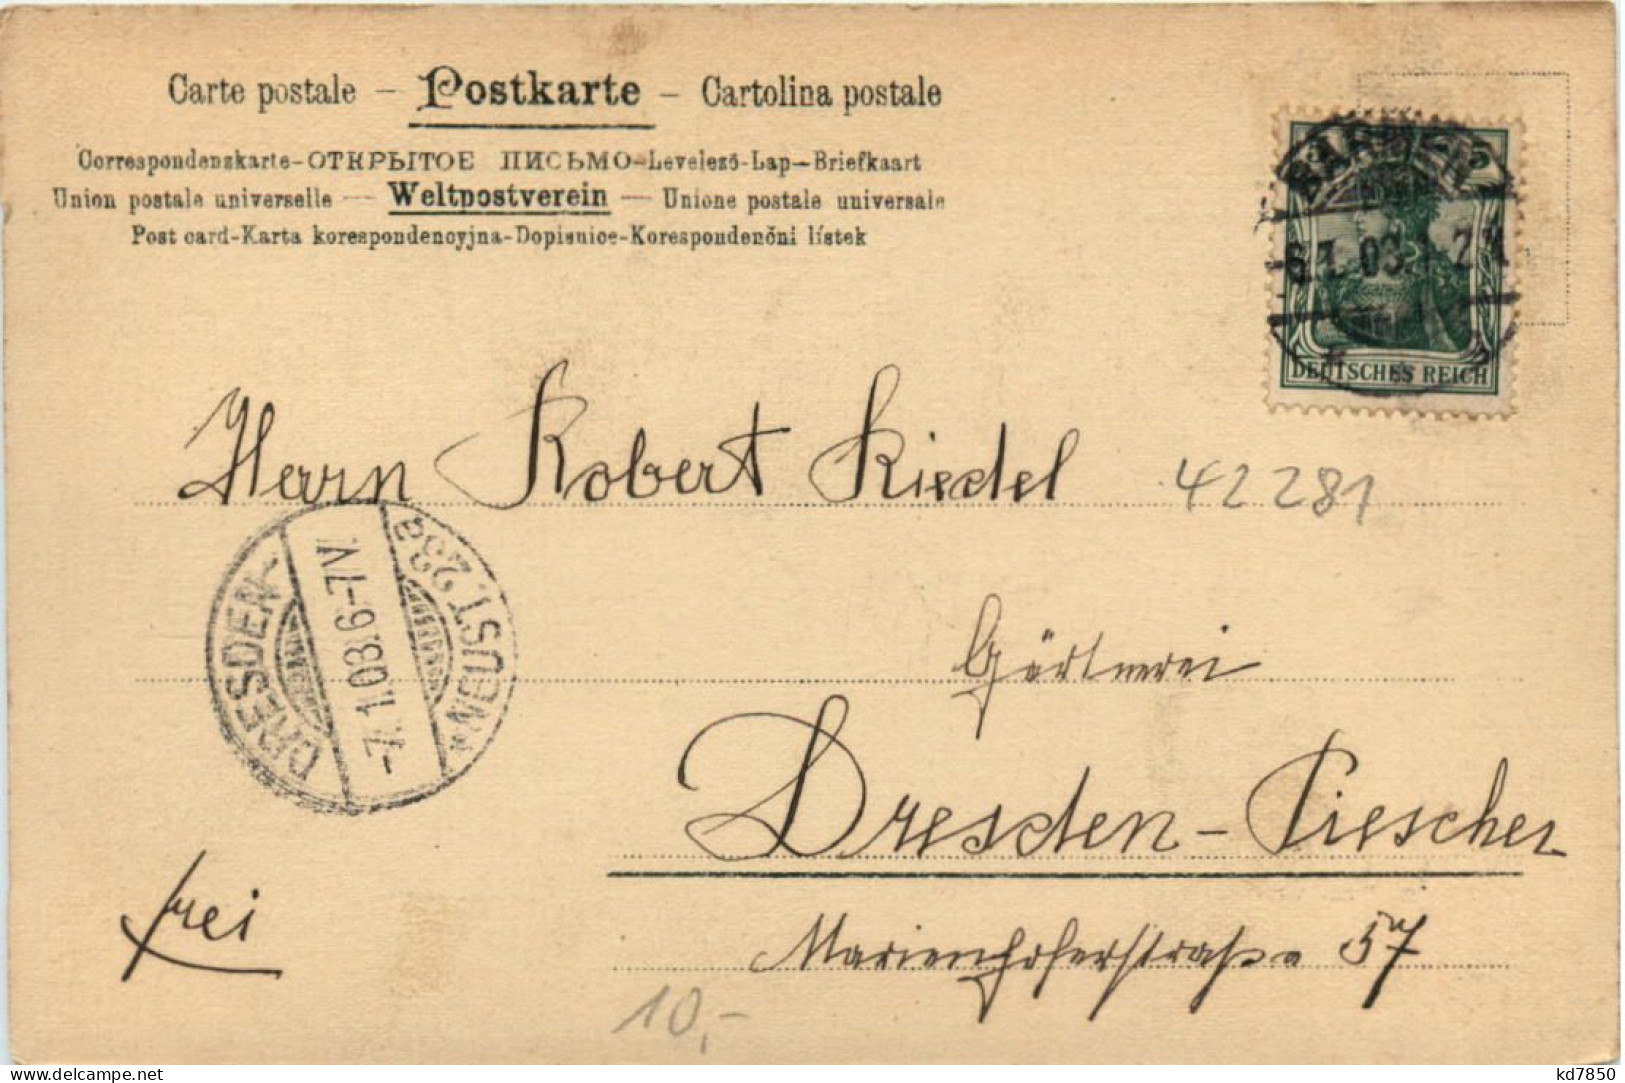 Carte postale – Postkarte – Cartolina postale
Correspondenzkarte–ОТКРЫТОЕ ПИСЬМО–Levelező-Lap–Briefkaart
Union postale universelle — Weltpostverein — Unione postale universale
Post card–Karta korespondencyjna–Dopisnice–Korespondenční lístek
BARMEN
5
6.1.03. 1-2N
DEUTSCHES REICH
Herrn Robert Riedel
42281
DRESDEN-NEUST. 23a
-7.1.03. 6-7V.
Gärtnerei
Dresden-Pieschen
frei
Marienhoferstraße 57
10,-
kd7850